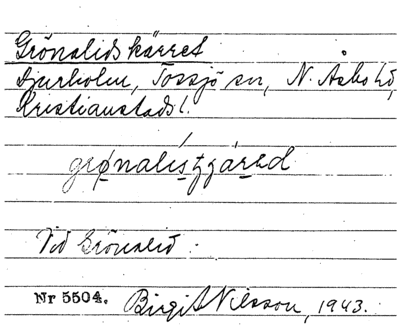 Grönalidskärret
Djurholm, Tossjö sn, N. Åsbo hd,
Kristianstads l.
Vid Grönalid.
Nr 5504. Birgit Nilsson, 1943.